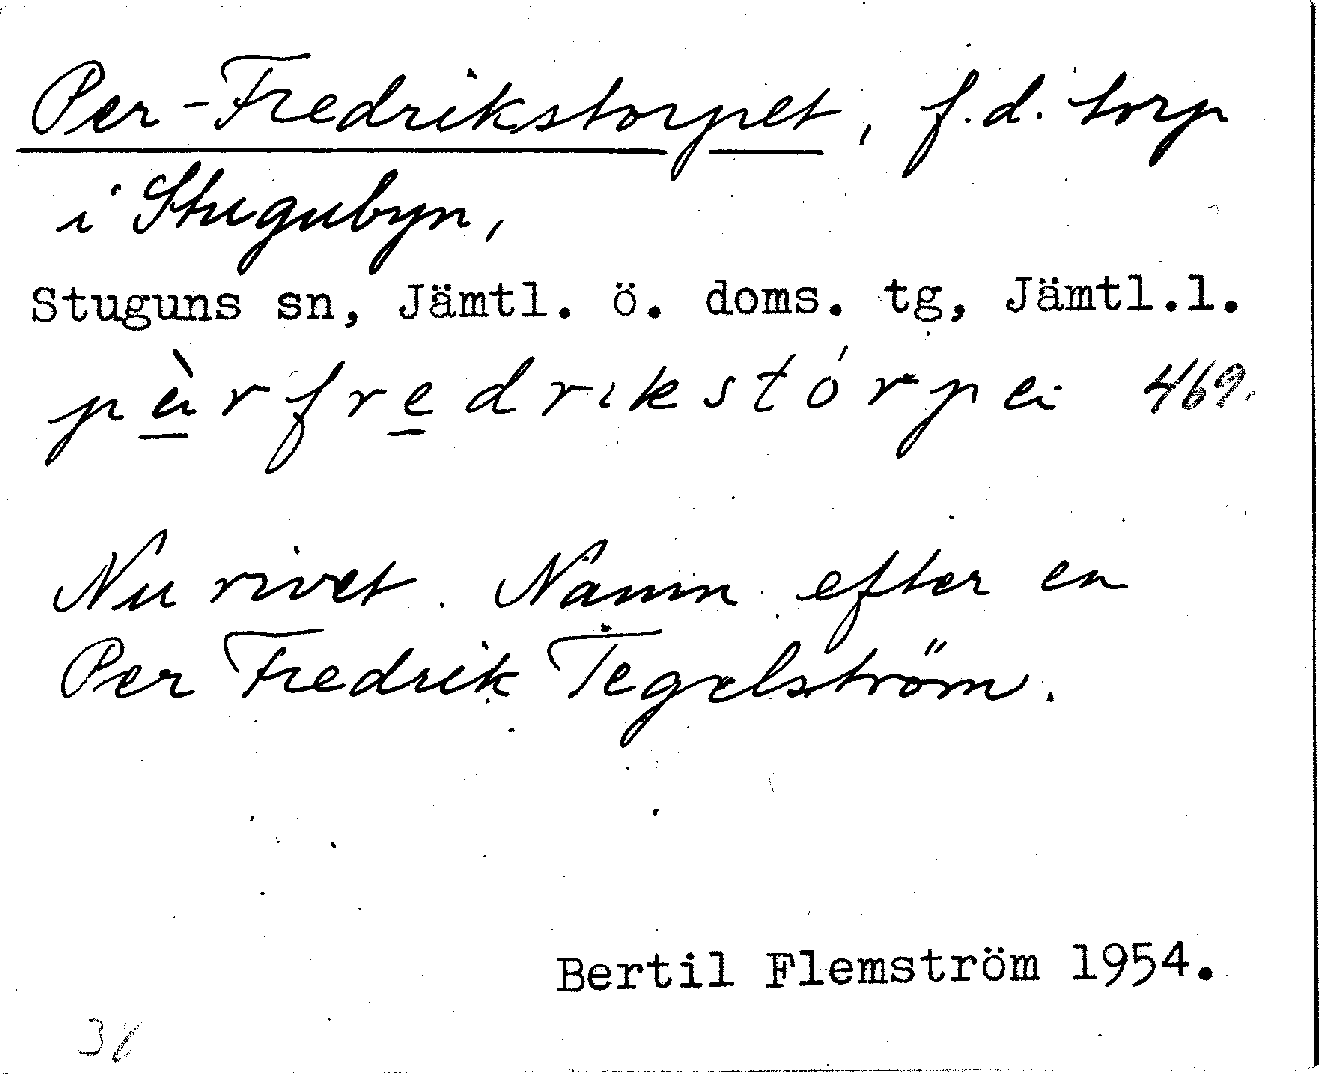 Per-Fredrikstorpet, f.d. torp
i Stugubyn,
Stuguns sn, Jämtl. ö. doms. tg, Jämtl.l.
pàrfredrikstórpa 469.
Nu rivet. Namn efter en
Per Fredrik Tegelström.
Bertil Flemström 1954.